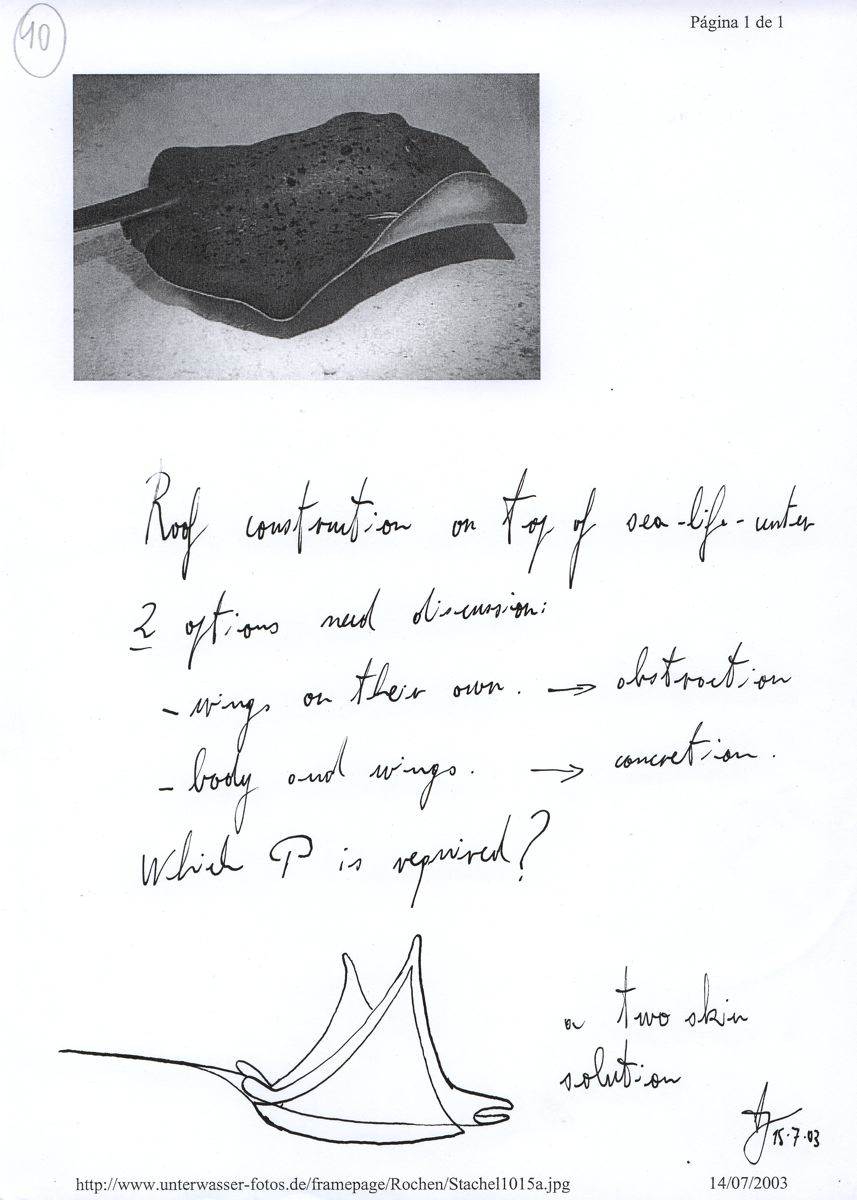 40
Página 1 de 1
Roof construction on top of sea-life-center
2 options need discussion:
- wings on their own. → abstraction
- body and wings. → concretion.
Which P is required?
a two skin
solution
15.7.03
http://www.unterwasser-fotos.de/framepage/Rochen/Stachel1015a.jpg
14/07/2003